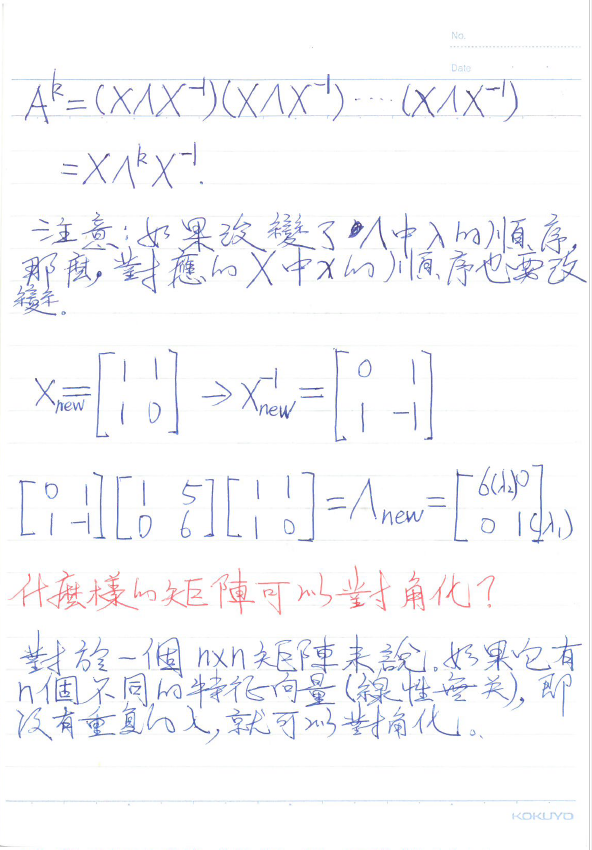 No.
Date
A^k = (XΛX^-1)(XΛX^-1)·····(XΛX^-1)
= XΛ^kX^-1.
注意:如果改變了Λ中λ的順序,
那麼,對應的X中x的順序也要改
變。
X_new = [1 1; 1 0] → X_new^-1 = [0 1; 1 -1]
[0 1; 1 -1][1 5; 0 6][1 1; 1 0] = Λ_new = [6(λ2) 0; 0 1(λ1)]
什麼樣的矩陣可以對角化?
對於一個n×n矩陣來說。如果它有
n個不同的特征向量(線性無关),即
没有重复的λ,就可以對角化。
KOKUYO